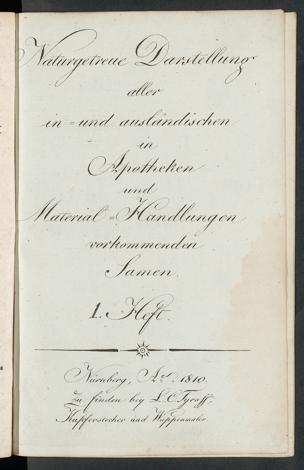 Naturgetreue Darstellung
aller
in- und ausländischen
in
Apotheken
und
Material-Handlungen
vorkommenden
Samen.
1. Heft.
Nürnberg, Aº. 1810.
Zu finden bey L. C. Tyroff.
Kupferstecher und Wappenmaler